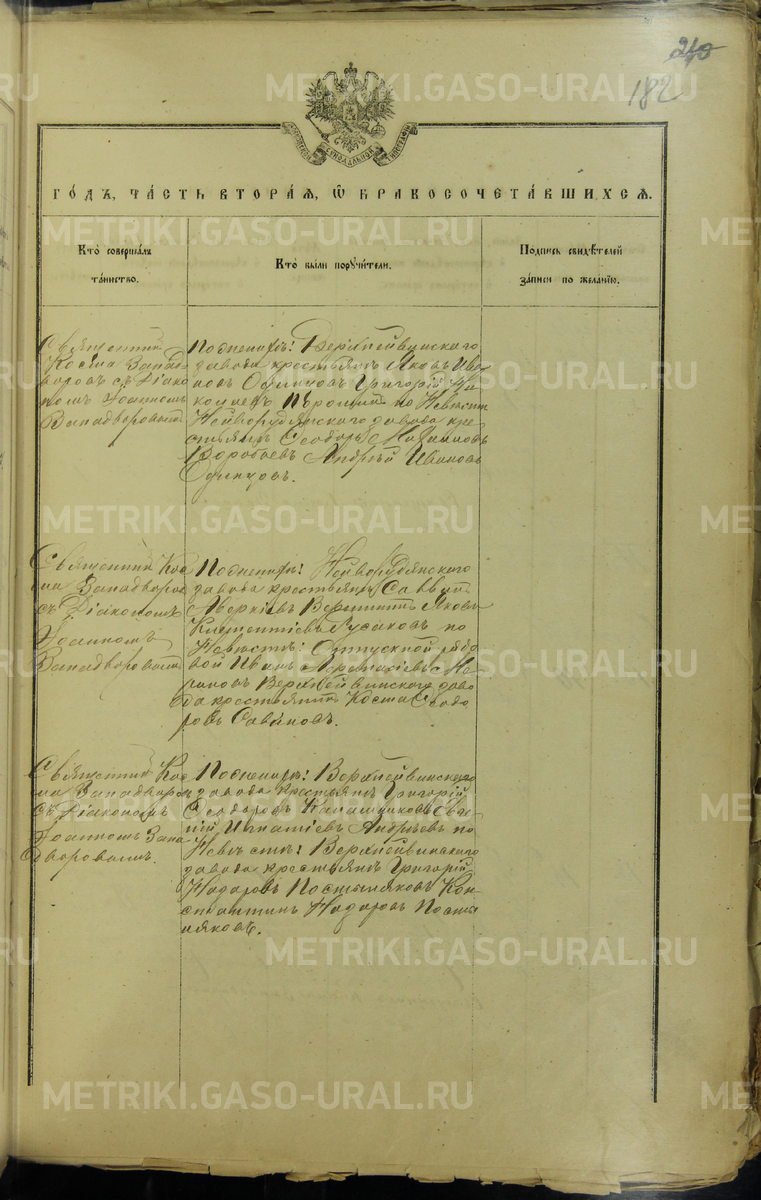 210
182
МОСКОВСКОЙ СѴНОДАЛЬНОЙ ТИПОГРАФІИ
ГО́ДЪ, ЧА́СТЬ ВТОРА́Ѧ, Ѿ БРАКОСОЧЕТА́ВШИХСѦ.
Кто̀ соверша́лъ
та́инство.
Кто̀ бы́ли порꙋчи́тели.
По́дпись свидѣ́телей
за́писи по жела́нію.
Священникъ
Косма Западво
ровъ съ Діако
номъ Іоанномъ
Западворовымъ
По женихѣ: Верхнейвинскаго
завода крестьянинъ Яковъ Ива
новъ Одинцовъ Григорій Ни
колаевъ по Невѣстѣ
Нейворудянскаго завода кре
стьянинъ Ѳеодоръ
Воробьевъ Андрей Ивановъ
Одинцовъ.
Священникъ Кос
ма Западворовъ
съ Діакономъ
Іоанномъ
Западворовымъ
По женихѣ: Нейворудянскаго
завода крестьянинъ Савватій
Аверкіевъ Яковъ
Климентіевъ Русаковъ по
Невѣстѣ: Отпускной рядо
вой Иванъ
Верхнейвинскаго заво
да крестьянинъ Косма Ѳеодо
ровъ Савиновъ.
Священникъ Кос
ма Западворовъ
съ Діакономъ
Іоанномъ Запа
дворовымъ.
По женихѣ: Верхнейвинскаго
завода крестьянинъ Григорій
Ѳеодоровъ Калашниковъ Евге
ній Игнатіевъ Андреевъ по
Невѣстѣ: Верхнейвинскаго
завода крестьянинъ Григорій
Назаровъ Постыляковъ Кон
стантинъ Назаровъ Посты
ляковъ.
METRIKI.GASO-URAL.RU